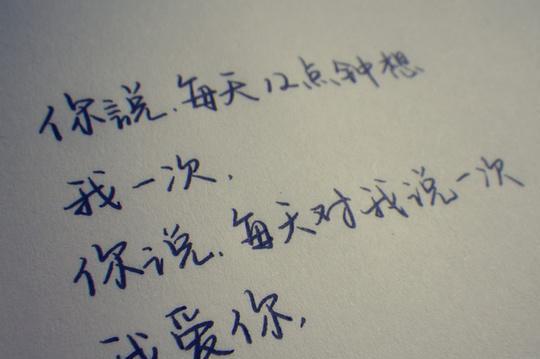 你說,每天12点钟想
我一次,
你说,每天对我说一次
我爱你,